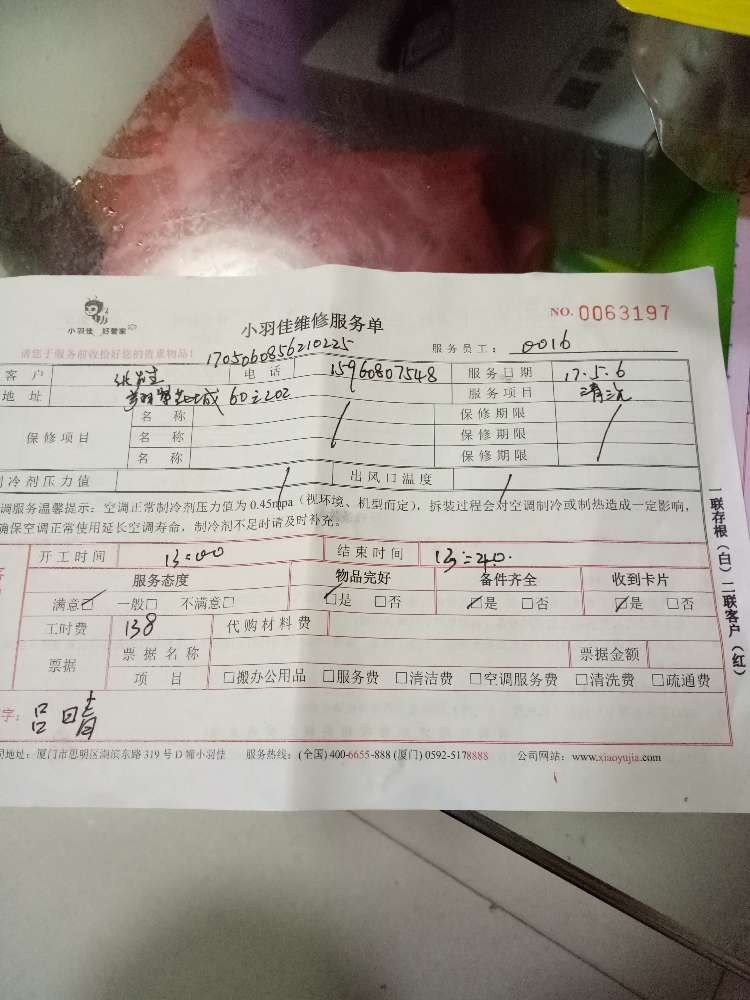 小羽佳 好管家
小羽佳维修服务单
NO. 0063197
请您于服务前收检好您的贵重物品!
1705060856210225
服务员工: 0016
客户 电话 15960807548 服务日期 17.5.6
地址 60之202 服务项目 清洗
保修项目 名称 保修期限
名称 保修期限
名称 保修期限
冷剂压力值 出风口温度
调服务温馨提示:空调正常制冷剂压力值为0.45mpa(视环境、机型而定),拆装过程会对空调制冷或制热造成一定影响,
确保空调正常使用延长空调寿命,制冷剂不足时请及时补充。
开工时间 13:00 结束时间 13:40.
服务态度 物品完好 备件齐全 收到卡片
满意☑ 一般□ 不满意□ ☑是 □否 ☑是 □否 ☑是 □否
工时费 138 代购材料费
票据 票据名称 票据金额
项目 □搬办公用品 □服务费 □清洁费 □空调服务费 □清洗费 □疏通费
字: 吕
司地址:厦门市思明区湖滨东路319号D幢小羽佳 服务热线:(全国)400-6655-888 (厦门) 0592-5178888 公司网站:www.xiaoyujia.com
一联存根(白)二联客户(红)